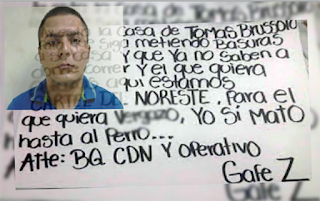 la casa de Tomas Brussolo
metiendo Basuras
y que Ya no saben a
correr Y el que quiera
aqui Estamos
NORESTE. Para el
que quiera Vergazo, Yo Si Mato
hasta al Perro...
Atte: BQ CDN Y operativo
Gafe Z